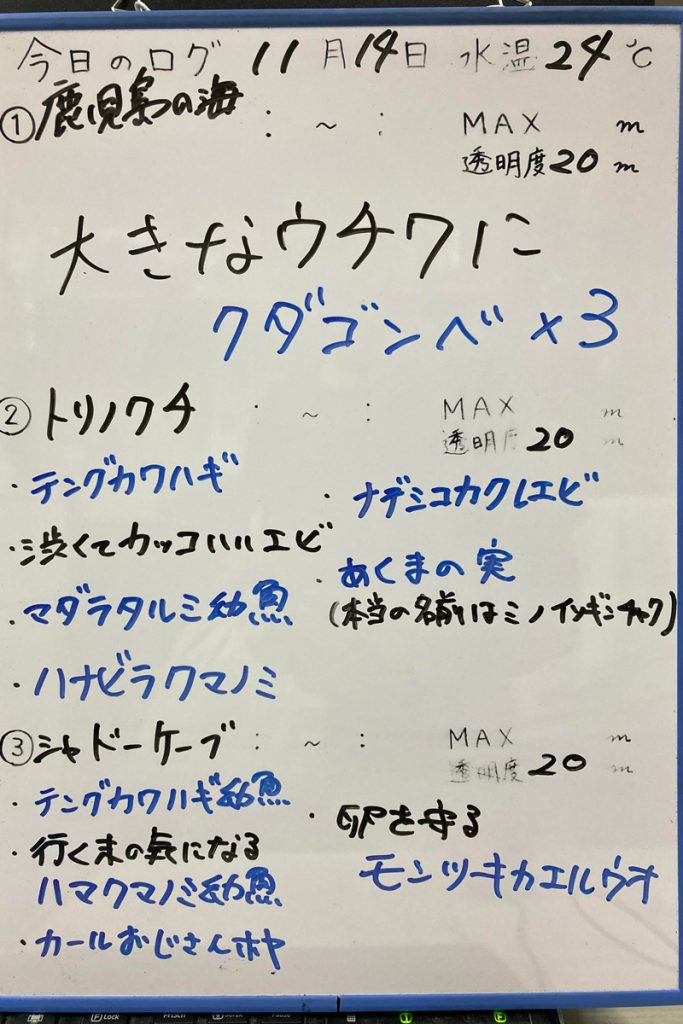 今日のログ 11月14日 水温24℃
①鹿児島の海 : ~ : MAX m
透明度20m
大きなウチワに
クダゴンベ×3
②トリノクチ : ~ : MAX m
透明度20m
・テングカワハギ
・渋くてカッコいいエビ
・マダラタルミ幼魚
・ハナビラクマノミ
・ナデシコカクレエビ
・あくまの実
(本当の名前はミノイソギンチャク)
③シャドーケーブ : ~ : MAX m
透明度20m
・テングカワハギ幼魚
・行く末の気になる
ハマクマノミ幼魚
・カールおじさんホヤ
・卵を守る
モンツキカエルウオ
Lock
PrtScn
Scroll
Pause